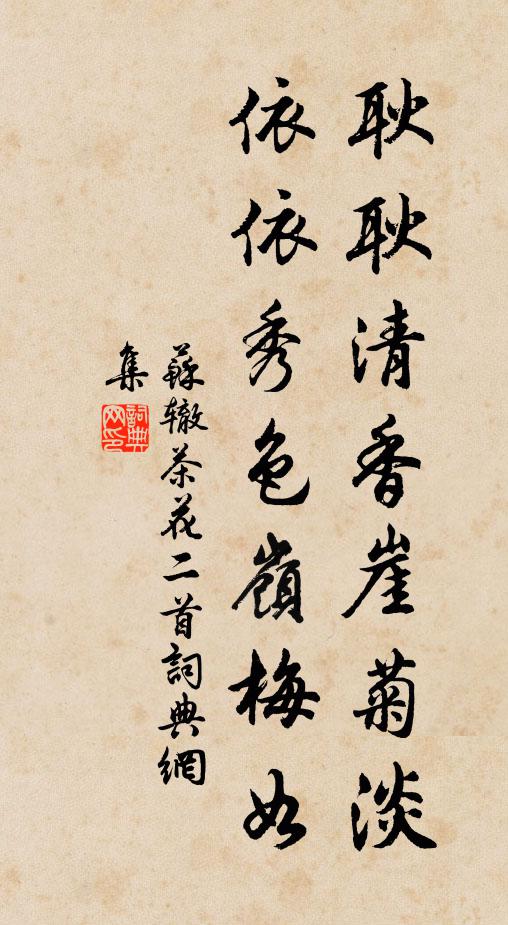 耿耿清香崖菊淡
依依秀色嶺梅如
蘇轍茶花二首詞典網
集
詞典网印